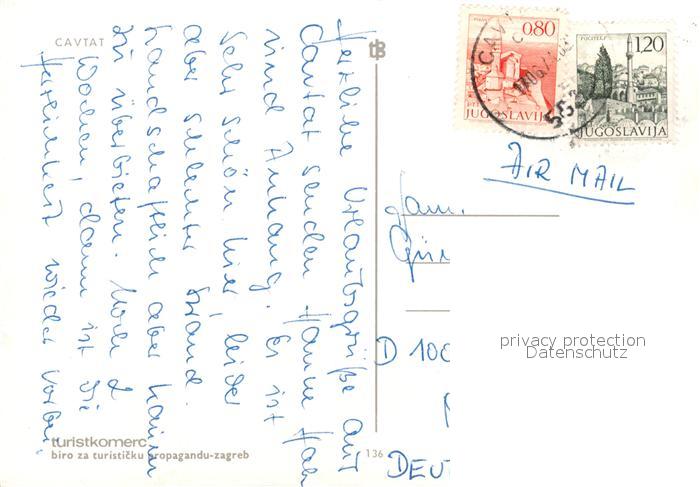 CAVTAT
Herzliche Urlaubsgrüße aus
Cavtat senden Hanne Hah
und Anhang. Es ist
sehr schön hier, leider
aber schlechter Strand.
Landschaftlich aber kaum
zu überbieten. Noch 2
Wochen, dann ist die
Herrlichkeit wieder vorbei.
turistkomerc
biro za turističku propagandu-zagreb
136
0.80
JUGOSLAVIJA
POCITELJ
1.20
JUGOSLAVIJA
CAVT
AIR MAIL
Fam.
D 100
DEU
privacy protection
Datenschutz